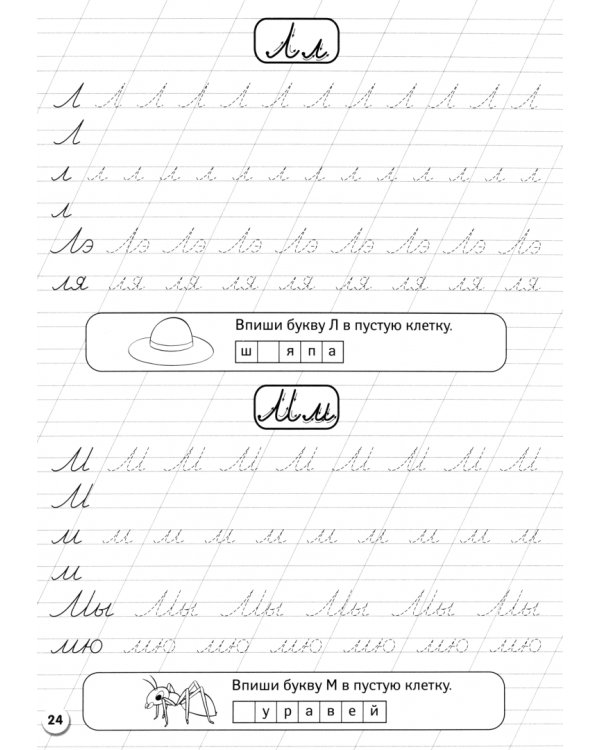 Л л
Л Л Л Л Л Л Л Л Л Л Л Л
Л
л л л л л л л л л л л л л л
л
Лэ Лэ Лэ Лэ Лэ Лэ Лэ Лэ Лэ
ля ля ля ля ля ля ля ля ля
Впиши букву Л в пустую клетку.
ш япа
М м
М М М М М М М М М
М
м м м м м м м м м м
м
Мы Мы Мы Мы Мы Мы
мю мю мю мю мю мю мю
Впиши букву М в пустую клетку.
уравей
24